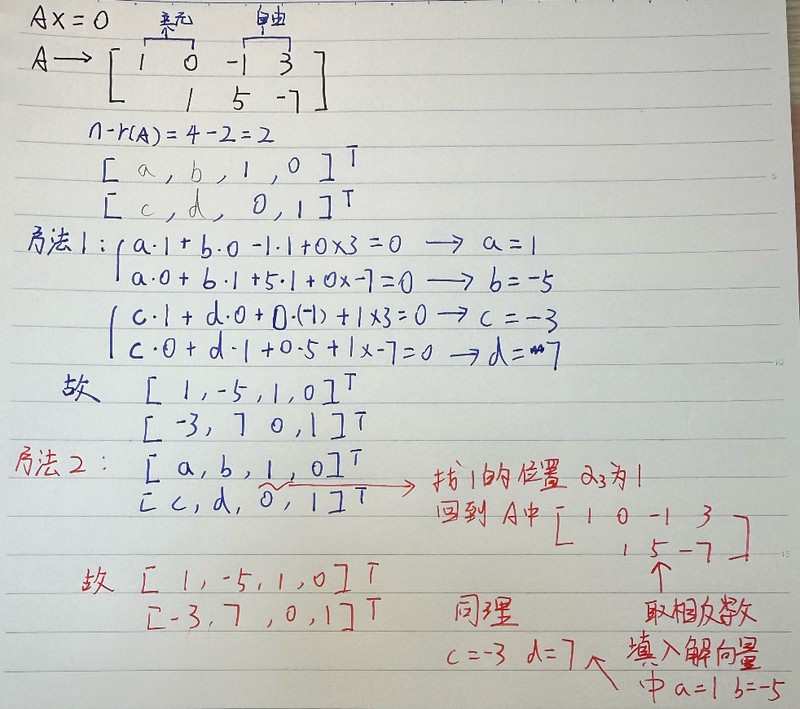 Ax=0 主元 自由
A→[ 1 0 -1 3
1 5 -7 ]
n-r(A)=4-2=2
[ a, b, 1, 0 ]ᵀ
[ c, d, 0, 1 ]ᵀ
方法1: { a·1+b·0-1·1+0×3=0 → a=1
a·0+b·1+5·1+0×-7=0 → b=-5
{ c·1+d·0+0·(-1)+1×3=0 → c=-3
c·0+d·1+0·5+1×-7=0 → d=7
故 [ 1, -5, 1, 0 ]ᵀ
[ -3, 7 0, 1 ]ᵀ
方法2: [ a, b, 1, 0 ]ᵀ
[ c, d, 0, 1 ]ᵀ
→ 找1的位置 α₃为1
回到A中 [ 1 0 -1 3
1 5 -7 ]
故 [ 1, -5, 1, 0 ]ᵀ
[ -3, 7, 0, 1 ]ᵀ
取相反数
填入解向量
中 a=1 b=-5
同理
c=-3 d=7